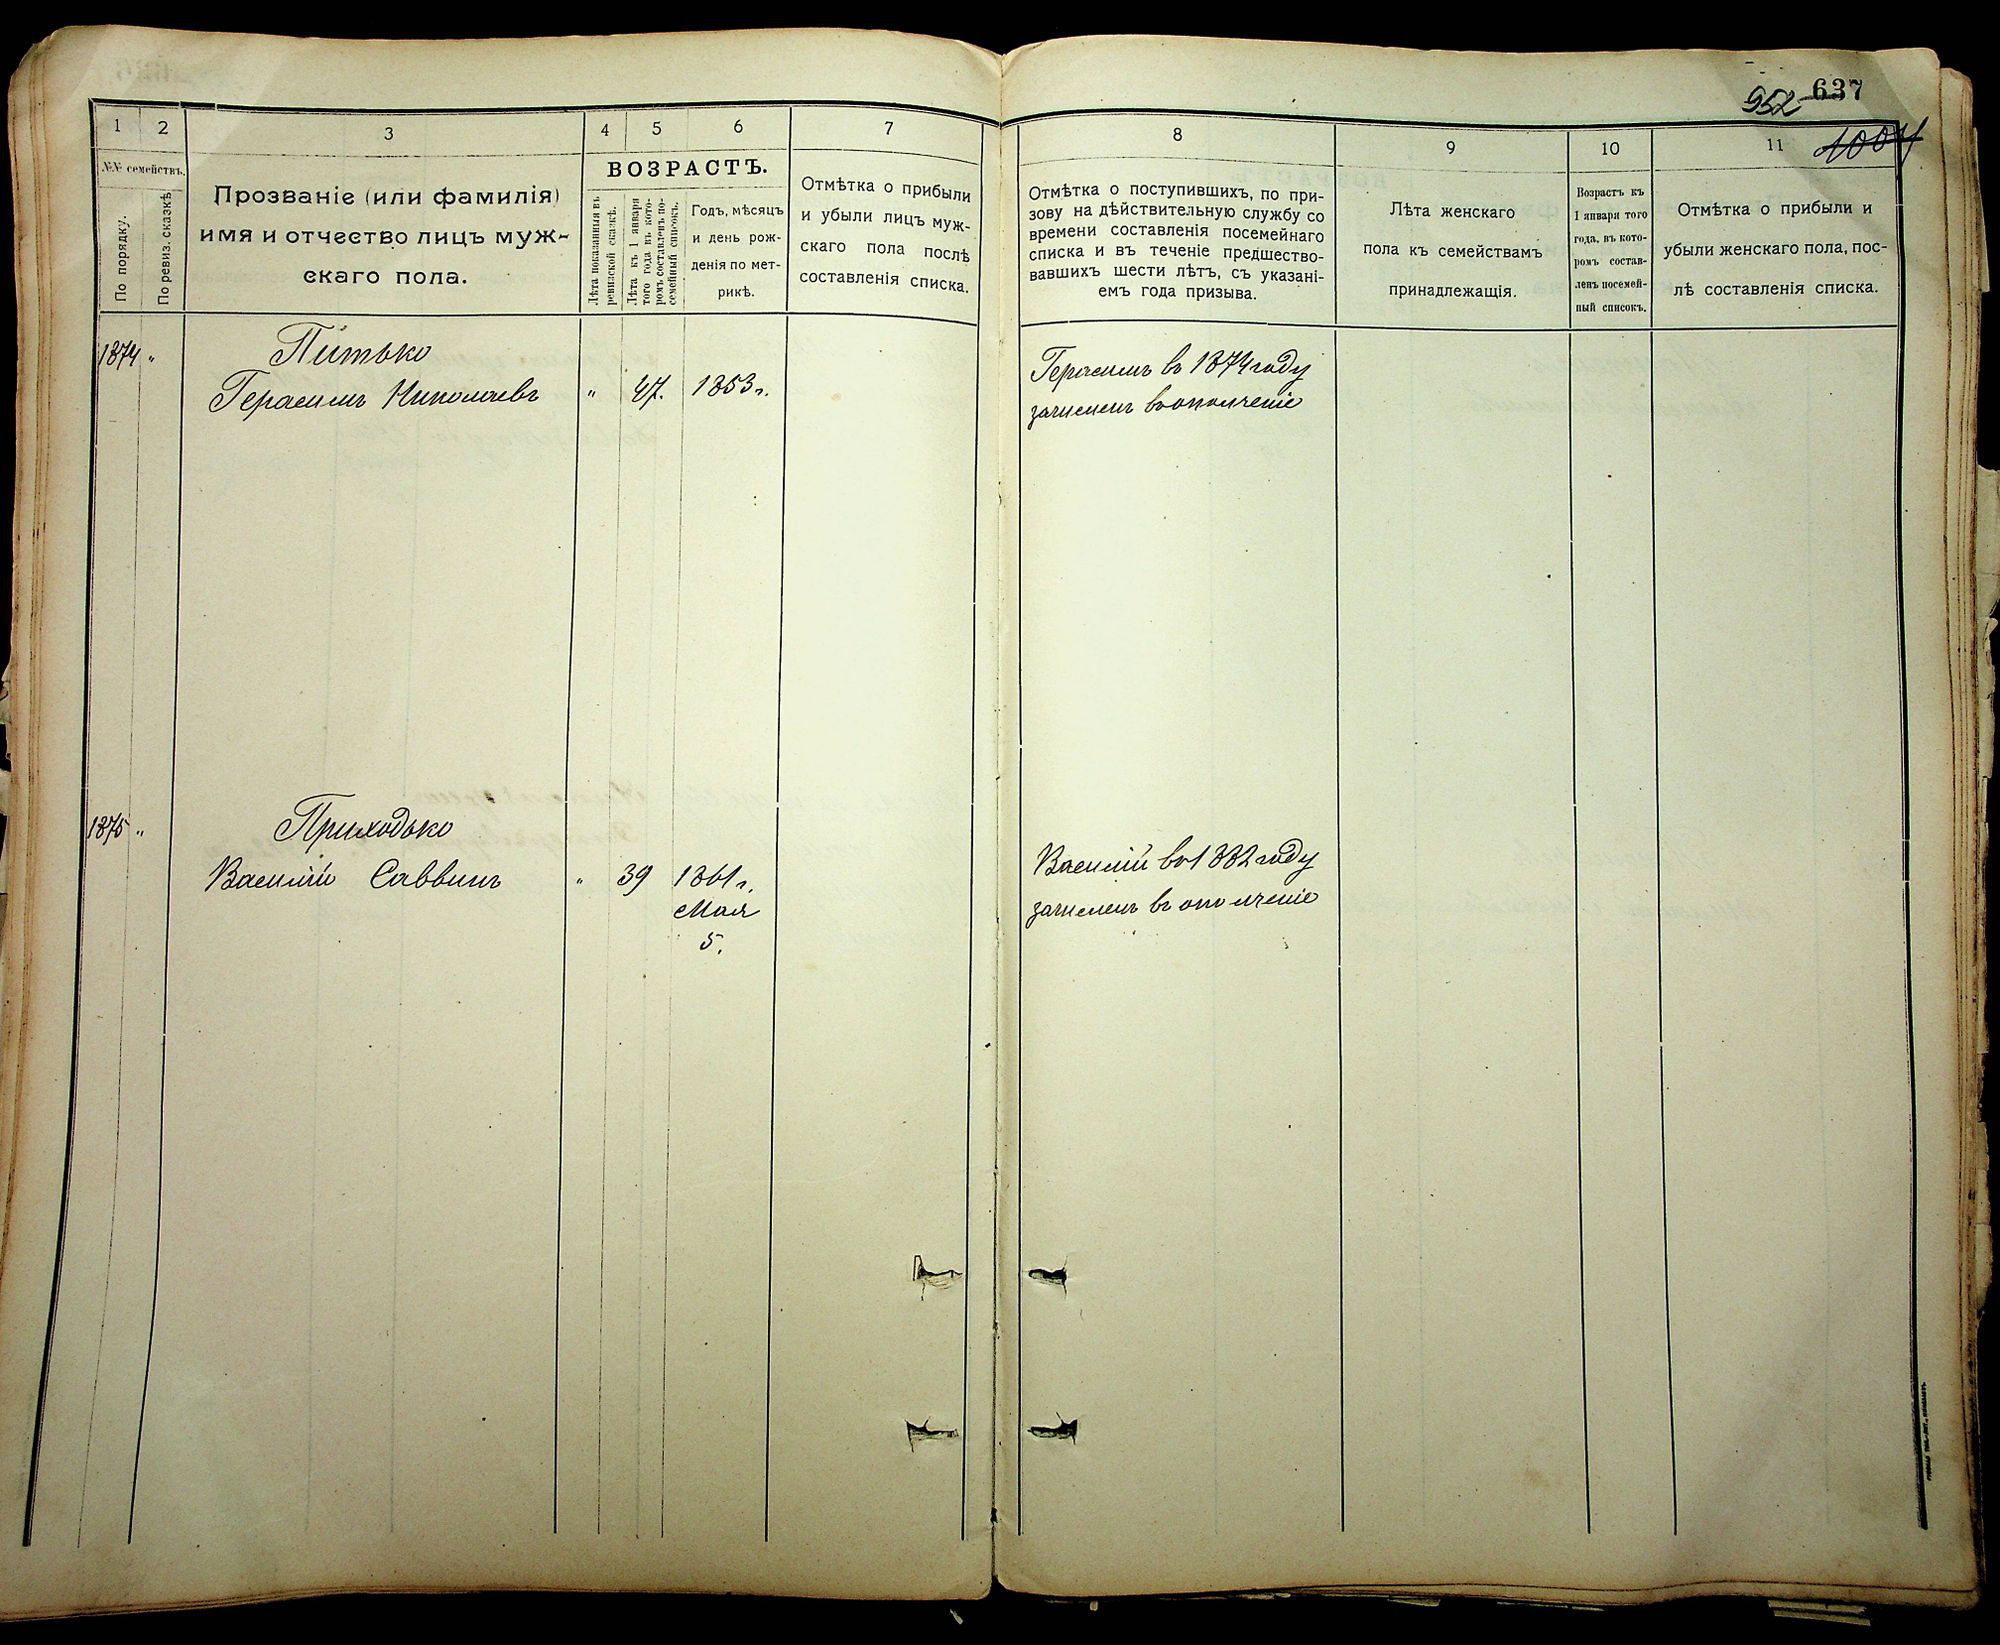 637
952
1004
1
2
3
4
5
6
7
8
9
10
11
№№ семействъ.
По порядку.
По ревиз. сказкѣ
Прозваніе (или фамилія)
имя и отчество лицъ муж-
скаго пола.
ВОЗРАСТЪ.
Лѣта показанныя въ
ревизской сказкѣ.
Лѣта къ 1 января
того года въ кото-
ромъ составленъ по-
семейный списокъ.
Годъ, мѣсяцъ
и день рож-
денія по мет-
рикѣ.
Отмѣтка о прибыли
и убыли лицъ муж-
скаго пола послѣ
составленія списка.
Отмѣтка о поступившихъ, по при-
зову на дѣйствительную службу со
времени составленія посемейнаго
списка и въ теченіе предшество-
вавшихъ шести лѣтъ, съ указані-
емъ года призыва.
Лѣта женскаго
пола къ семействамъ
принадлежащія.
Возрастъ къ
1 января того
года, въ кото-
ромъ состав-
ленъ посемей-
ный списокъ.
Отмѣтка о прибыли и
убыли женскаго пола, пос-
лѣ составленія списка.
1874 "
Питько
Герасимъ Николаевъ " 47. 1853 г.
Герасимъ въ 1874 году
зачисленъ въ ополченіе
1875 "
Приходько
Василій Саввинъ " 39 1861 г.
Мая
5.
Василій въ 1882 году
зачисленъ въ ополченіе